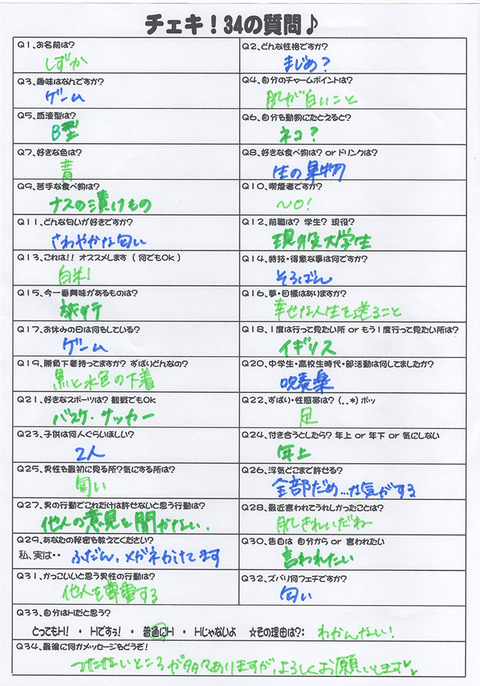 チェキ!34の質問♪
Q1.お名前は? Q2.どんな性格ですか?
しずか まじめ?
Q3.趣味はなんですか? Q4.自分のチャームポイントは?
ゲーム 肌が白いこと
Q5.血液型は? Q6.自分を動物にたとえると?
B型 ネコ?
Q7.好きな色は? Q8.好きな食べ物は? or ドリンクは?
青 生の果物
Q9.苦手な食べ物は? Q10.喫煙者ですか?
ナスの漬けもの NO!
Q11.どんな匂いが好きですか? Q12.前職は? 学生? 現役?
さわやかな匂い 現役大学生
Q13.これは!! オススメします(何でもOk) Q14.特技・得意な事は何ですか?
白米! そろばん
Q15.今一番興味があるものは? Q16.夢・目標はありますか?
旅行 幸せな人生を送ること
Q17.お休みの日は何をしている? Q18.1度は行って見たい所 or もう1度行って見たい所は?
ゲーム イギリス
Q19.勝負下着持ってますか? ずばりどんなの? Q20.中学生・高校生時代・部活動は何してましたか?
黒と水色の下着 吹奏楽
Q21.好きなスポーツは? 観戦でもOk Q22.ずばり・性感帯は? (..*)ポッ
バスケ・サッカー 足
Q23.子供は何人ぐらいほしい? Q24.付き合うとしたら? 年上 or 年下 or 気にしない
2人 年上
Q25.男性を最初に見る所?気にする所は? Q26.浮気どこまで許せる?
匂い 全部だめ…な気がする
Q27.男の行動でこれだけは許せないと思う行動は? Q28.最近言われてうれしかったことは?
他人の意見を聞かない. 肌きれいだね
Q29.あなたの秘密を教えてください? Q30.告白は 自分から or 言われたい
私、実は・・ ふだん、メガネかけてます 言われたい
Q31.かっこいいと思う男性の行動は? Q32.ズバリ何フェチですか?
他人を尊重する 匂い
Q33.自分はHだと思う?
とってもH! ・ Hですぅ! ・ 普通にH ・ Hじゃないよ ☆その理由は?: わかんない!
Q34.最後に何かメッセージをどうぞ!
つたないところが多々ありますが、よろしくお願いします♥